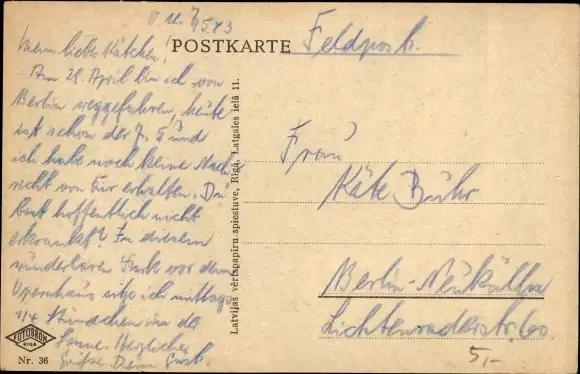 O. U. 7/5 43
Mein liebes Kätchen!
Am 28. April bin ich von
Berlin weggefahren, heute
ist schon der 7. 5 und
ich habe noch keine Nach
richt von Dir erhalten. Du
bist hoffentlich nicht
erkrankt? In diesem
wunderbaren Park vor dem
Opernhaus sitze ich mittags
1/4 Stündchen in der
Sonne. Herzliche
Grüße Dein
FOTOBROM
RIGA
Nr. 36
Latvijas vērtspapīru spiestuve, Rīgā, Latgales ielā 11.
POSTKARTE
Feldpost.
Frau
Käte Buhr
Berlin-Neukölln
Lichtenraderstr. 60.
5,-